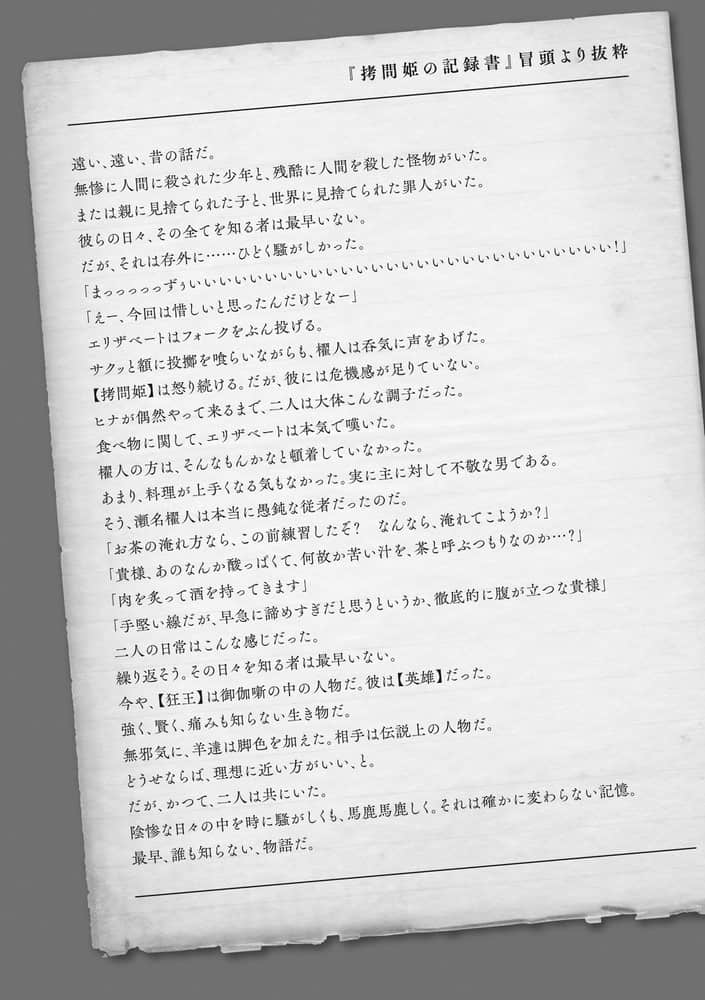 『拷問姫の記録書』冒頭より抜粋
遠い、遠い、昔の話だ。
無惨に人間に殺された少年と、残酷に人間を殺した怪物がいた。
または親に見捨てられた子と、世界に見捨てられた罪人がいた。
彼らの日々、その全てを知る者は最早いない。
だが、それは存外に……ひどく騒がしかった。
「まっっっっっずぅいいいいいいいいいいいいいいいいいいいいいいいいいいい！」
「えー、今回は惜しいと思ったんだけどなー」
エリザベートはフォークをぶん投げる。
サクッと額に投擲を喰らいながらも、櫂人は呑気に声をあげた。
【拷問姫】は怒り続ける。だが、彼には危機感が足りていない。
ヒナが偶然やって来るまで、二人は大体こんな調子だった。
食べ物に関して、エリザベートは本気で嘆いた。
櫂人の方は、そんなもんかなと頓着していなかった。
あまり、料理が上手くなる気もなかった。実に主に対して不敬な男である。
そう、瀬名櫂人は本当に愚鈍な従者だったのだ。
「お茶の淹れ方なら、この前練習したぞ？　なんなら、淹れてこようか？」
「貴様、あのなんか酸っぱくて、何故か苦い汁を、茶と呼ぶつもりなのか…？」
「肉を炙って酒を持ってきます」
「手堅い線だが、早急に諦めすぎだと思うというか、徹底的に腹が立つな貴様」
二人の日常はこんな感じだった。
繰り返そう。その日々を知る者は最早いない。
今や、【狂王】は御伽噺の中の人物だ。彼は【英雄】だった。
強く、賢く、痛みも知らない生き物だ。
無邪気に、羊達は脚色を加えた。相手は伝説上の人物だ。
どうせならば、理想に近い方がいい、と。
だが、かつて、二人は共にいた。
陰惨な日々の中を時に騒がしくも、馬鹿馬鹿しく。それは確かに変わらない記憶。
最早、誰も知らない、物語だ。